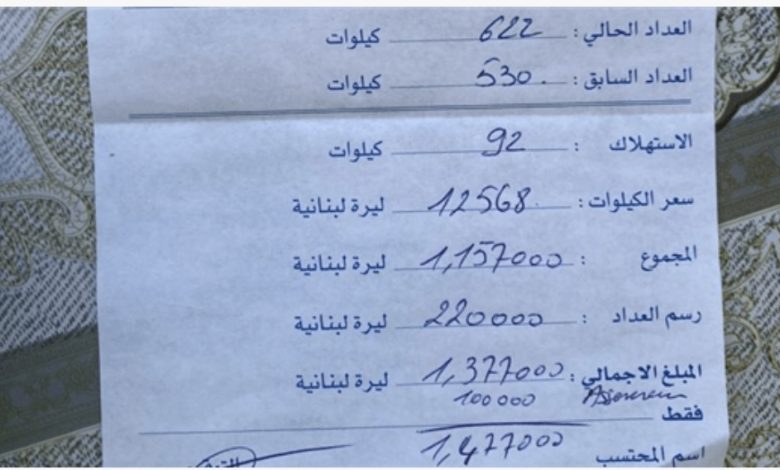 العداد الحالي : 622 كيلوات
العداد السابق : 530. كيلوات
الاستهلاك : 92 كيلوات
سعر الكيلوات : 12568. ليرة لبنانية
المجموع : 1,157000 ليرة لبنانية
رسم العداد : 220000 ليرة لبنانية
المبلغ الاجمالي : 1,377000 ليرة لبنانية
100000
فقط
1,477000
اسم المحتسب